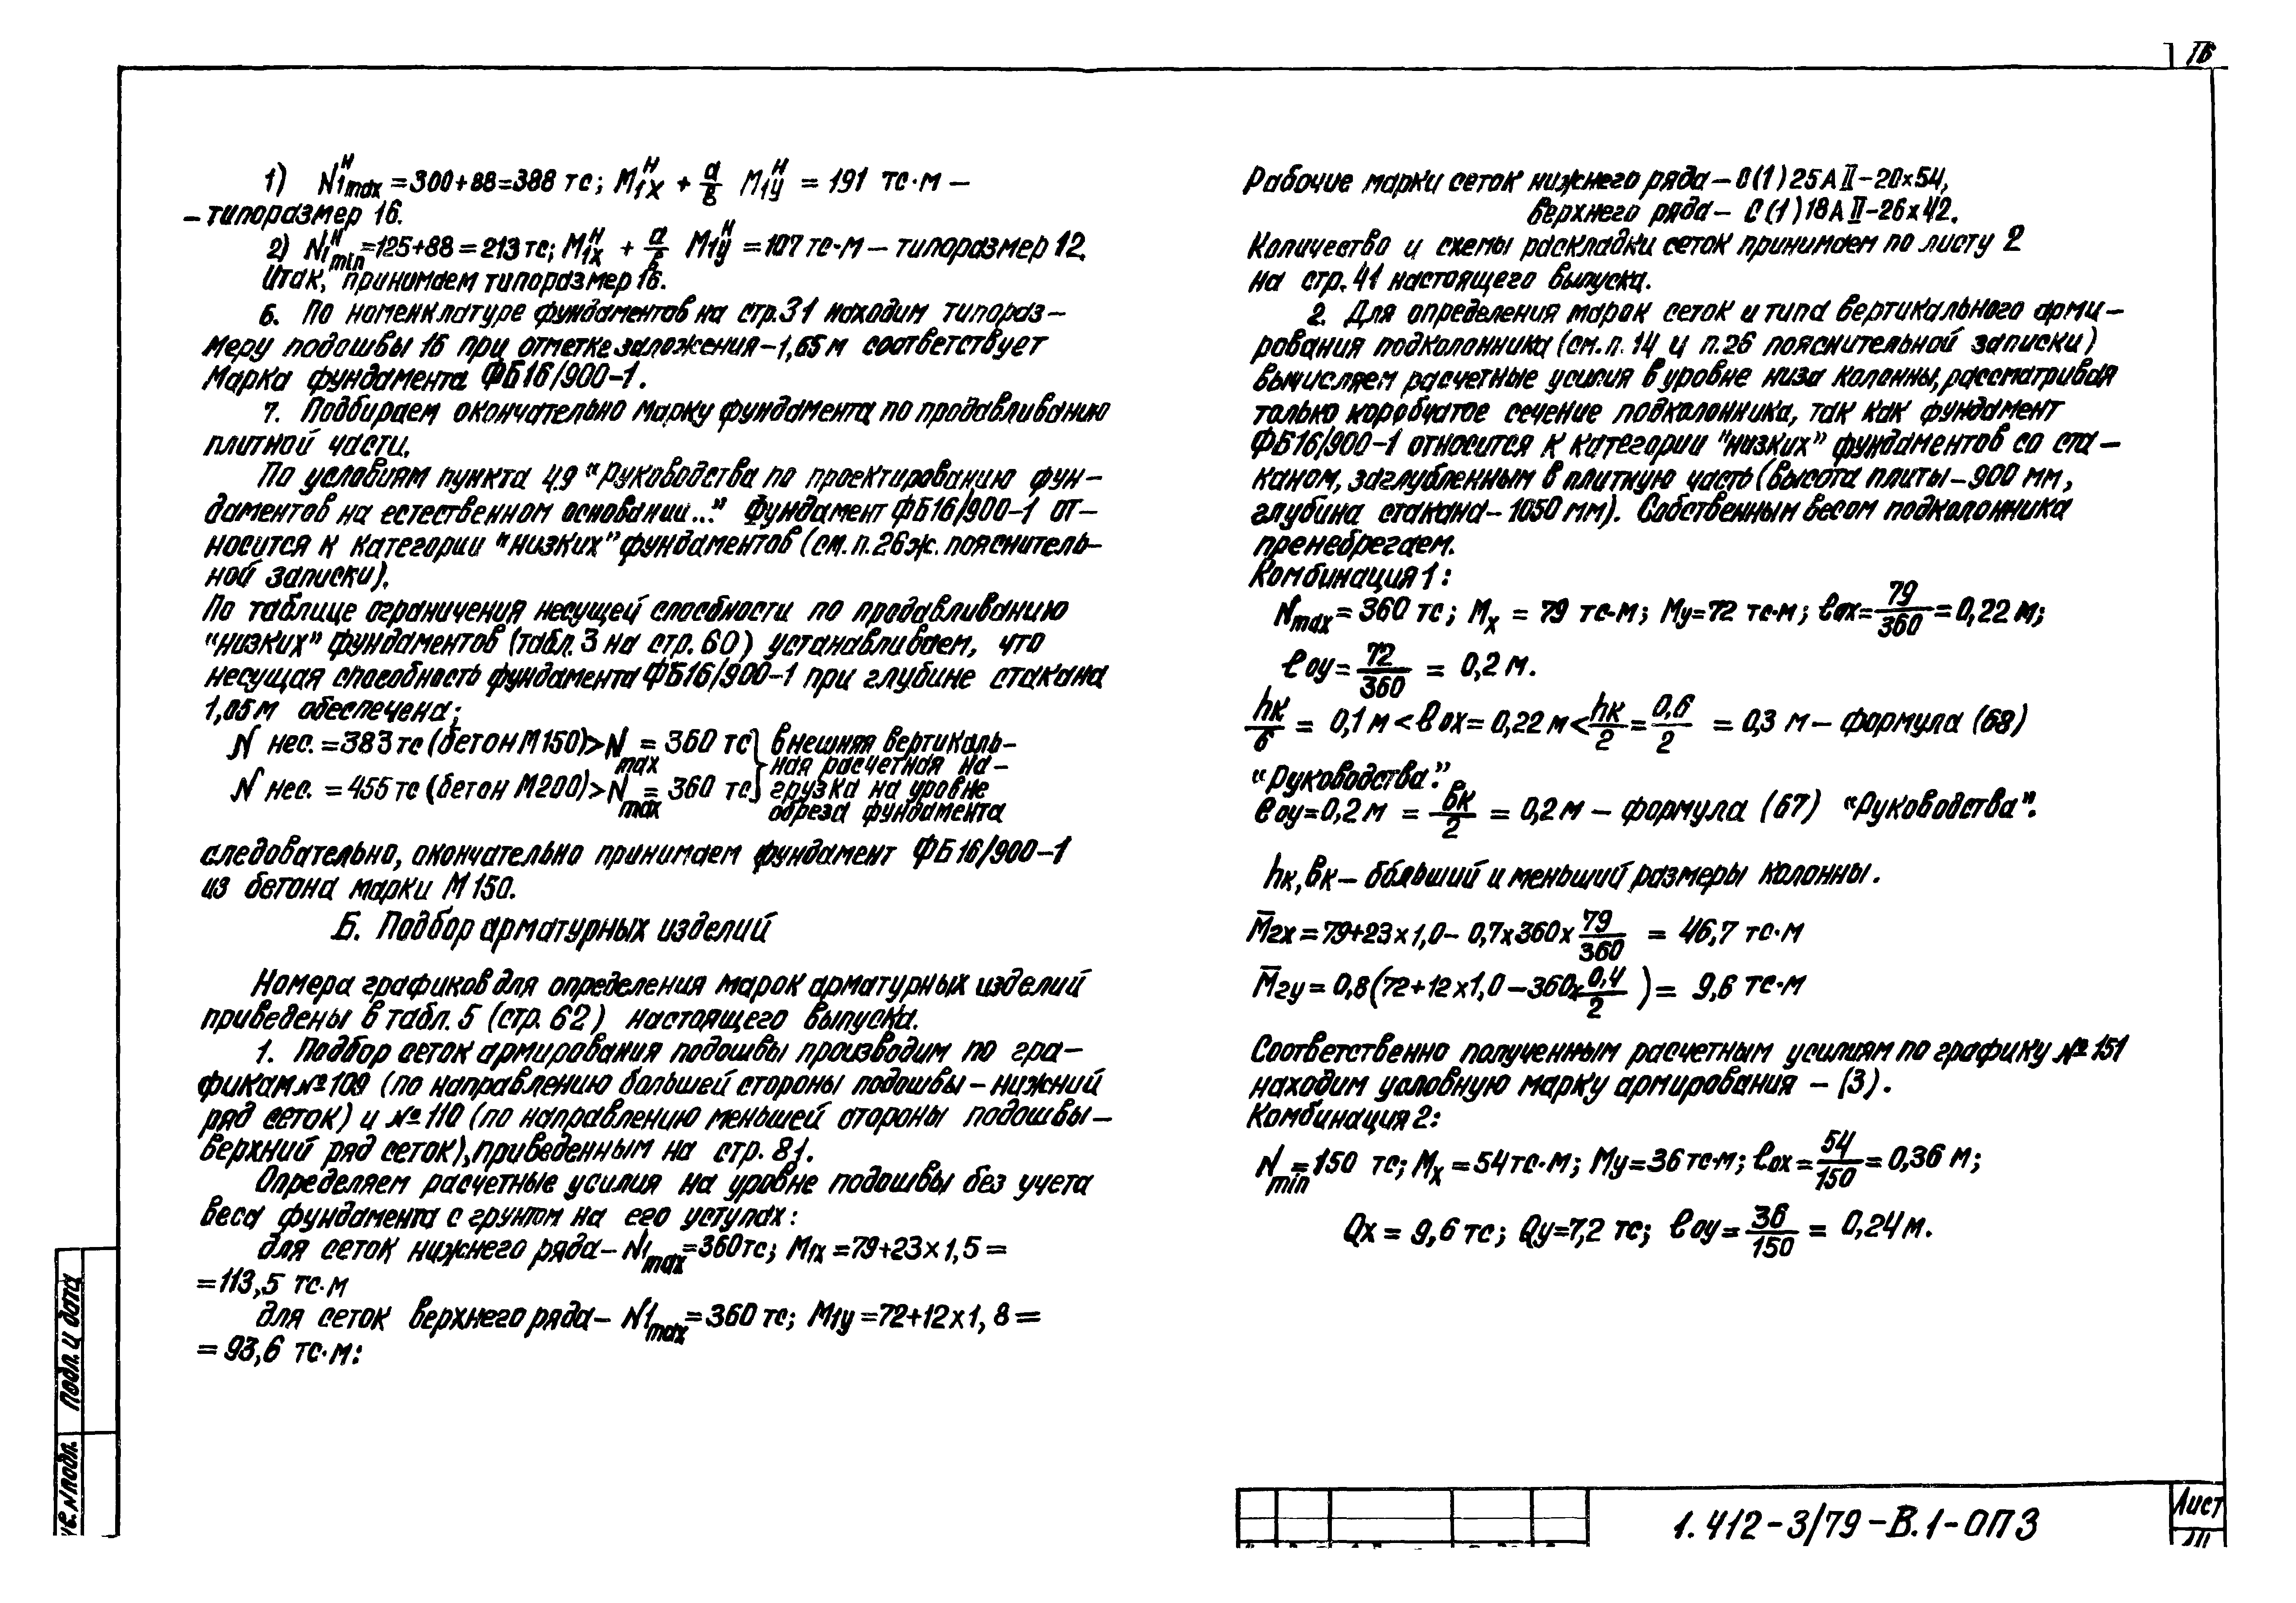 16
1) N₁ᴴmax = 300+88=388 тс; M₁ₓᴴ + а/в M₁yᴴ = 191 тс·м —
– типоразмер 16.
2) N₁ᴴmin = 125+88 = 213 тс; M₁ₓᴴ + а/в M₁yᴴ = 107 тс·м — типоразмер 12.
Итак, принимаем типоразмер 16.
6. По номенклатуре фундаментов на стр. 31 находим типораз-
меру подошвы 16 при отметке заложения -1,65 м соответствует
марка фундамента ФБ16/900-1.
7. Подбираем окончательно марку фундамента по продавливанию
плитной части.
По условиям пункта 4.9 "Руководства по проектированию фун-
даментов на естественном основании..." Фундамент ФБ16/900-1 от-
носится к категории "низких" фундаментов (см. п. 26ж. пояснитель-
ной записки).
По таблице ограничения несущей способности по продавливанию
"низких" фундаментов (табл. 3 на стр. 60) устанавливаем, что
несущая способность фундамента ФБ16/900-1 при глубине стакана
1,05 м обеспечена;
N нес. = 383 тс (бетон М150) > N max = 360 тс
N нес. = 455 тс (бетон М200) > N max = 360 тс
внешняя вертикаль-
ная расчетная на-
грузка на уровне
обреза фундамента
следовательно, окончательно принимаем фундамент ФБ16/900-1
из бетона марки М 150.
Б. Подбор арматурных изделий
Номера графиков для определения марок арматурных изделий
приведены в табл. 5 (стр. 62) настоящего выпуска.
1. Подбор сеток армирования подошвы производим по гра-
фикам №109 (по направлению большей стороны подошвы – нижний
ряд сеток) и №110 (по направлению меньшей стороны подошвы –
верхний ряд сеток), приведенным на стр. 81.
Определяем расчетные усилия на уровне подошвы без учета
веса фундамента с грунтом на его уступах:
для сеток нижнего ряда – N1max = 360 тс; M1x = 79+23×1,5 =
= 113,5 тс·м
для сеток верхнего ряда – N1max = 360 тс; M1y = 72+12×1,8 =
= 93,6 тс·м:
Рабочие марки сеток нижнего ряда – С(1)25АII-20×54,
верхнего ряда – С(1)18АII-26×42.
Количество и схемы раскладки сеток принимаем по листу 2
на стр. 41 настоящего выпуска.
2. Для определения марок сеток и типа вертикального арми-
рования подколонника (см. п. 14 и п. 26 пояснительной записки)
вычисляем расчетные усилия в уровне низа колонны, рассматривая
только коробчатое сечение подколонника, так как фундамент
ФБ16/900-1 относится к категории "низких" фундаментов со ста-
каном, заглубленным в плитную часть (высота плиты – 900 мм,
глубина стакана – 1050 мм). Собственным весом подколонника
пренебрегаем.
Комбинация 1:
Nmax = 360 тс; Mx = 79 тс·м; My = 72 тс·м; eох = 79/360 = 0,22 м;
eоу = 72/360 = 0,2 м.
hк/6 = 0,1 м < eох = 0,22 м < hк/2 = 0,6/2 = 0,3 м – формула (68)
"Руководства".
eоу = 0,2 м = вк/2 = 0,2 м – формула (67) "Руководства".
hк, вк – больший и меньший размеры колонны.
M̄гх = 79+23×1,0 – 0,7×360× 79/360 = 46,7 тс·м
M̄гу = 0,8(72+12×1,0–360× 0,4/2) = 9,6 тс·м
Соответственно полученным расчетным усилиям по графику №151
находим условную марку армирования – (3).
Комбинация 2:
N min = 150 тс; Mx = 54 тс·м; My = 36 тс·м; eох = 54/150 = 0,36 м;
Qx = 9,6 тс; Qy = 7,2 тс; eоу = 36/150 = 0,24 м.
Подп. и дата
1.412-3/79-В.1-ОПЗ
Лист